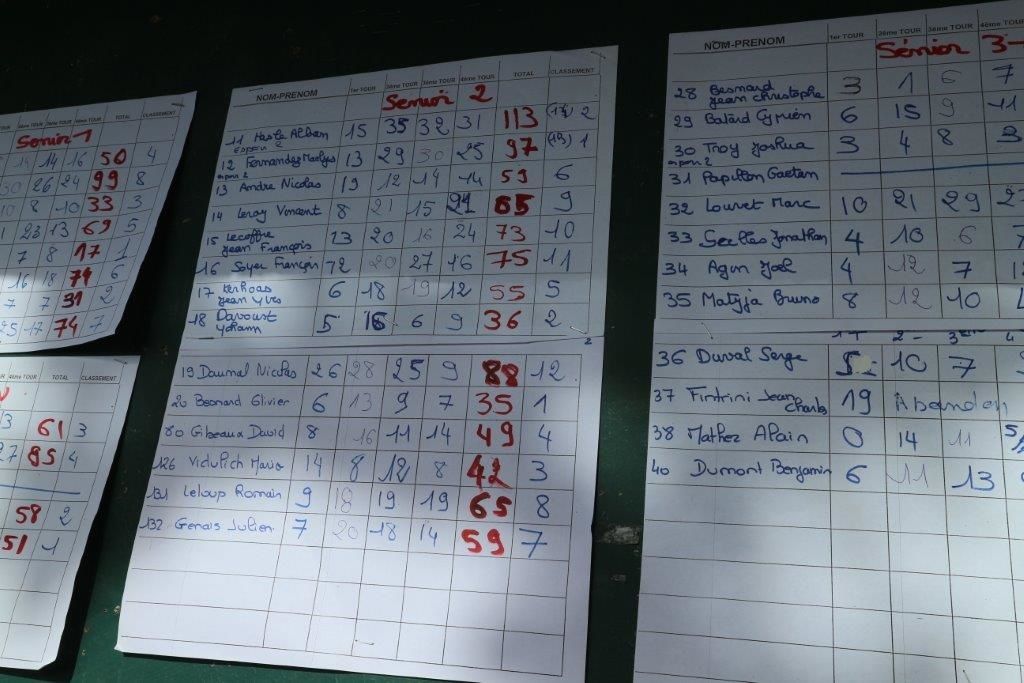 3ème TOUR 4ème TOUR TOTAL CLASSEMENT
Senior 1
14 16 50 4
30 26 24 99 8
10 8 10 33 3
1 23 13 69 5
7 8 17 1
16 18 74 6
7 7 31 2
25 17 74 7
TOUR 4ème TOUR TOTAL CLASSEMENT
13 61 3
27 85 4
58 2
51 1
NOM-PRENOM 1er TOUR 2ème TOUR 3ème TOUR 4ème TOUR TOTAL CLASSEMENT
Senior 2
11 Haste Alban 15 35 32 31 113 (14) 2
espoir 2
12 Fernandez Maelys 13 29 30 25 97 (13) 1
espoir 2
13 Andre Nicolas 19 12 14 14 59 6
14 Leroy Vincent 8 21 15 21 65 9
15 Lecoffre Jean François 13 20 16 24 73 10
16 Soyer François 12 20 27 16 75 11
17 Kerhoas Jean Yves 6 18 19 12 55 5
18 Davoust Yohann 5 16 6 9 36 2
2
19 Daumal Nicolas 26 28 25 9 88 12
20 Besnard Olivier 6 13 9 7 35 1
80 Gibeaux David 8 16 11 14 49 4
126 Vidulich Mario 14 8 12 8 42 3
131 Leloup Romain 9 18 19 19 65 8
132 Genais Julien 7 20 18 14 59 7
NOM-PRENOM 1er TOUR 2ème TOUR 3ème TOUR 4ème TOUR
Sénior 3
28 Besnard Jean Christophe 3 1 6 7
29 Balard Cyprien 6 15 9 11
30 Troy Joshua 3 4 8 3
espoir 2
31 Papillon Gaetan
32 Louvet Marc 10 21 29
33 Seelles Jonathan 4 10 6
34 Agin Joel 4 12 7
35 Matyja Bruno 8 12 10
1T 2 3ème 4
36 Duval Serge 5 10 7
37 Fintrini Jean Charles 19 Abandon
38 Mathez Alain 0 14 11
40 Dumont Benjamin 6 11 13